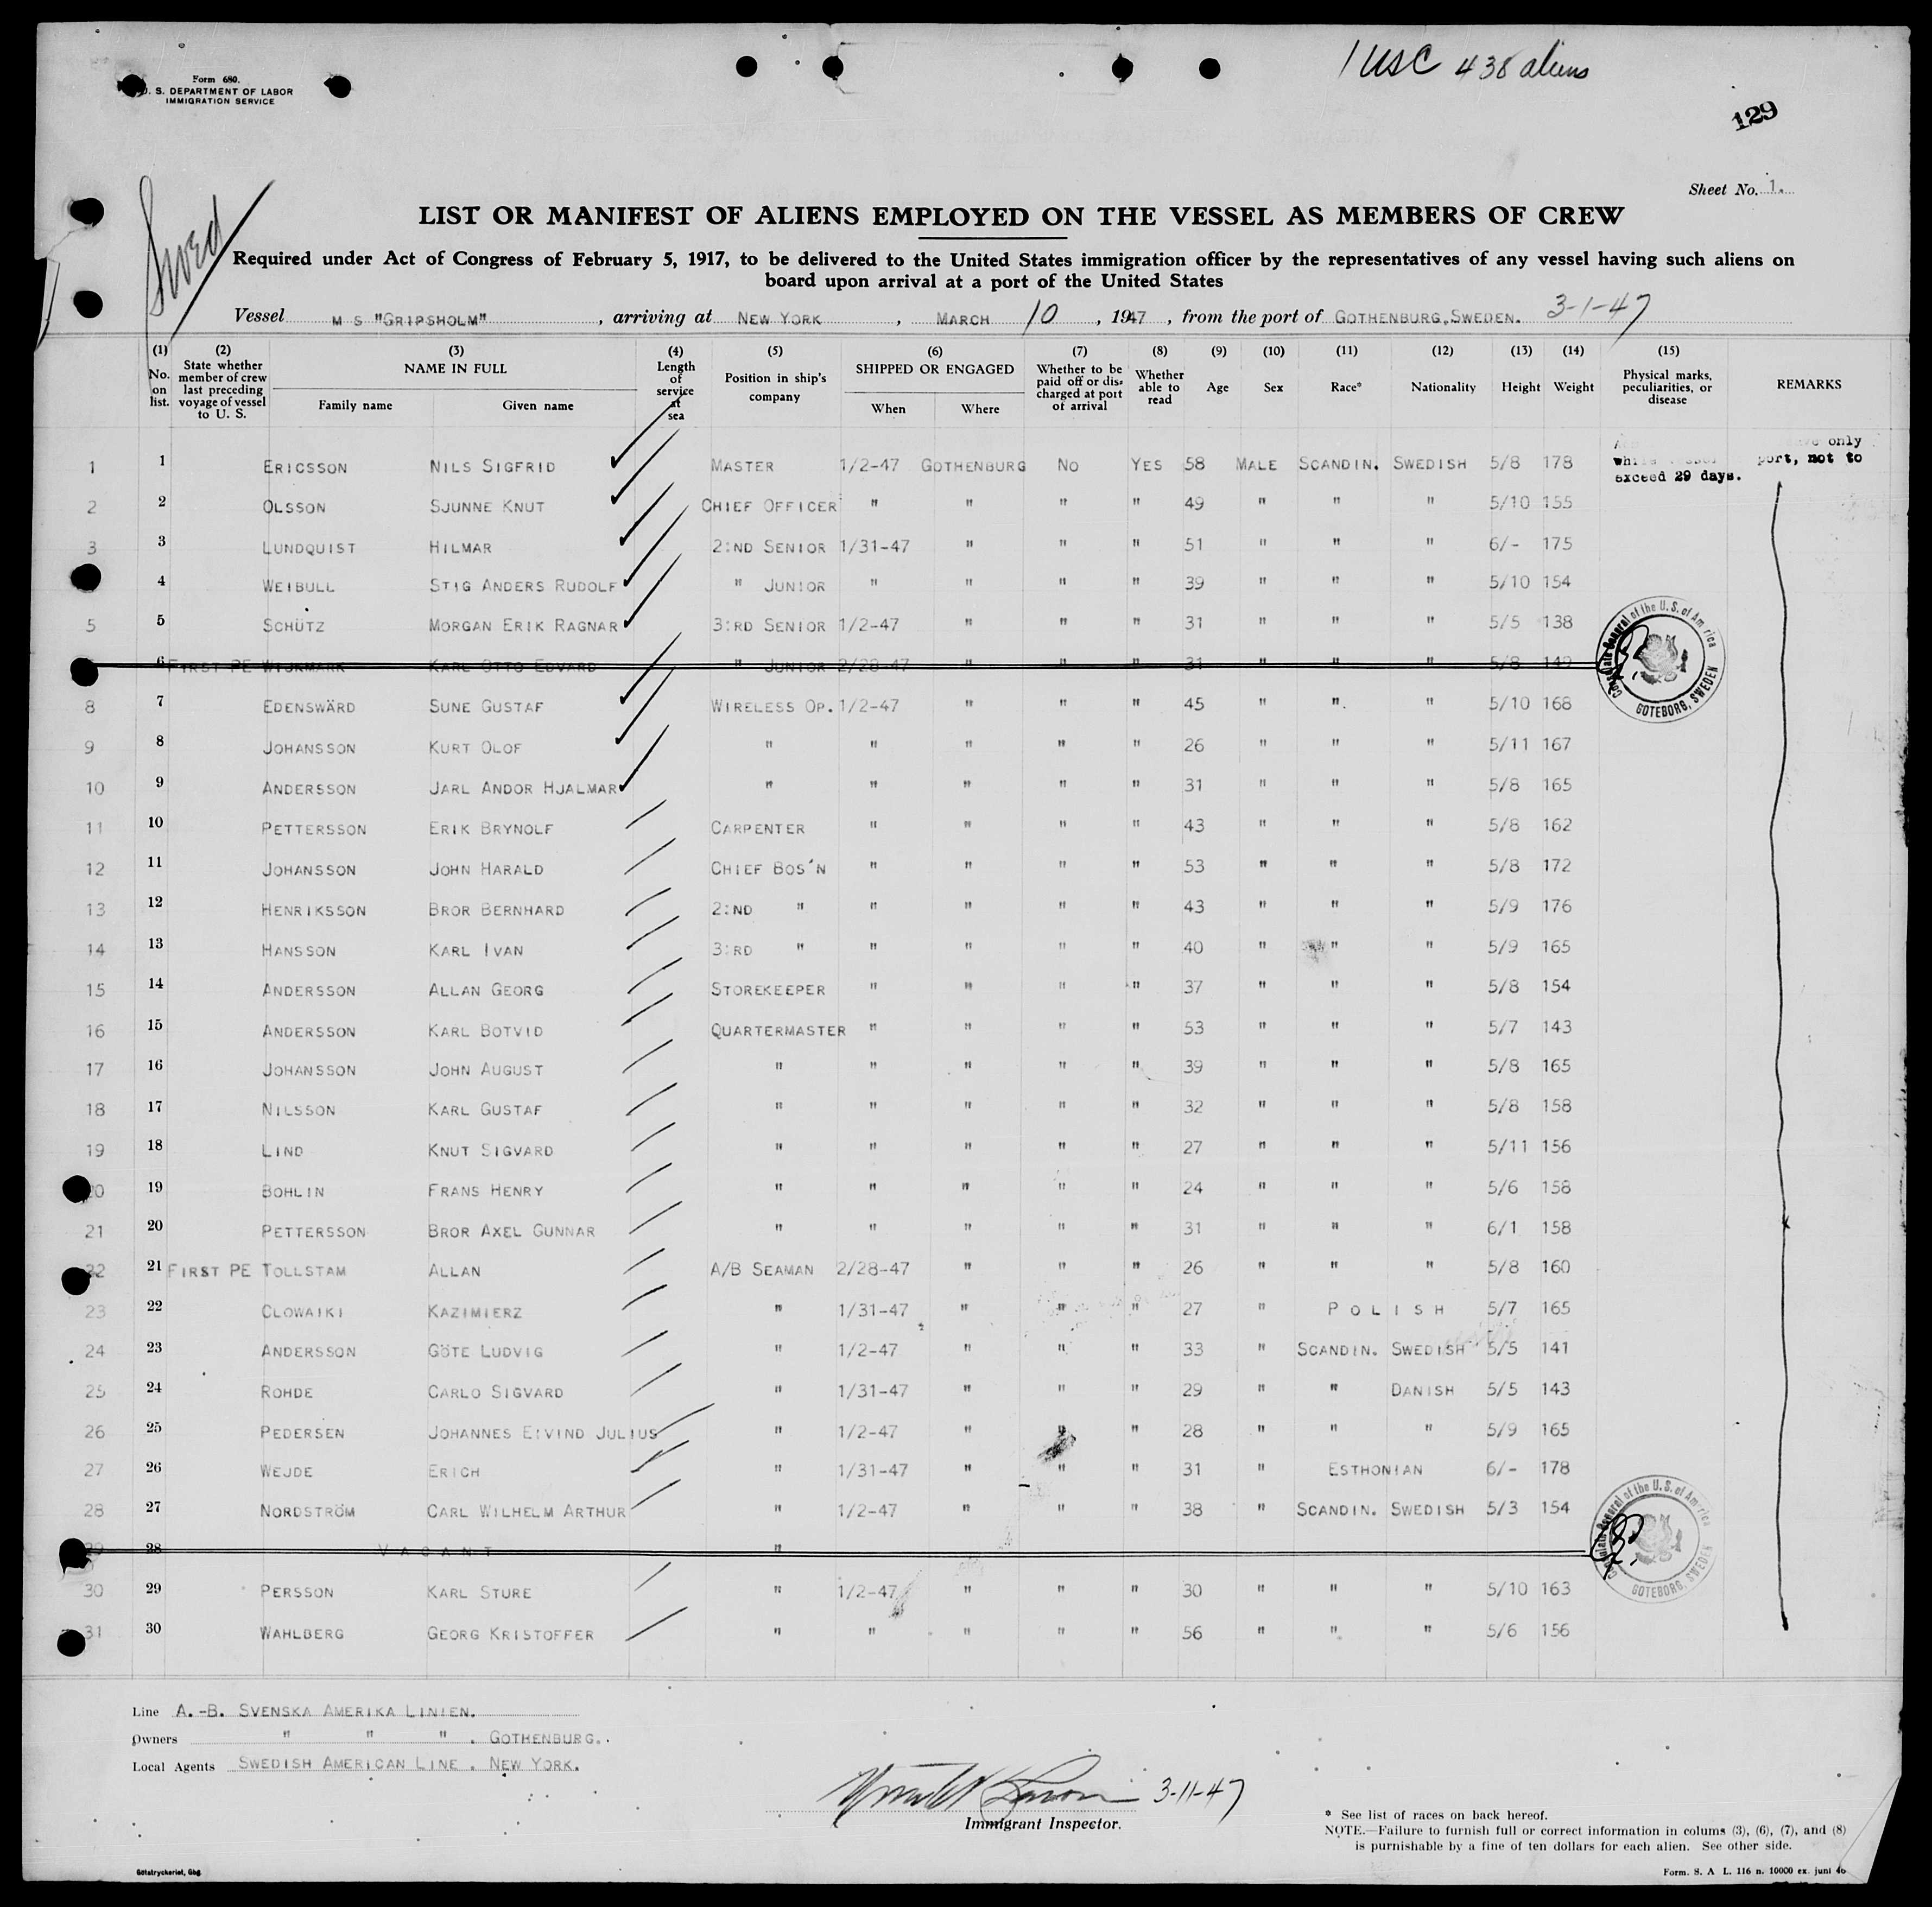 1 USC 438 aliens
Form 680.
U. S. DEPARTMENT OF LABOR
IMMIGRATION SERVICE
129
Sheet No. 1.
Swed
LIST OR MANIFEST OF ALIENS EMPLOYED ON THE VESSEL AS MEMBERS OF CREW
Required under Act of Congress of February 5, 1917, to be delivered to the United States immigration officer by the representatives of any vessel having such aliens on
board upon arrival at a port of the United States
Vessel M S "GRIPSHOLM" , arriving at NEW YORK , MARCH 10 , 1947 , from the port of GOTHENBURG, SWEDEN. 3-1-47
(1) No. on list. (2) State whether member of crew last preceding voyage of vessel to U. S. (3) NAME IN FULL Family name Given name (4) Length of service at sea (5) Position in ship's company (6) SHIPPED OR ENGAGED When Where (7) Whether to be paid off or discharged at port of arrival (8) Whether able to read (9) Age (10) Sex (11) Race* (12) Nationality (13) Height (14) Weight (15) Physical marks, peculiarities, or disease REMARKS
only
1 1 ERICSSON NILS SIGFRID MASTER 1/2-47 GOTHENBURG NO YES 58 MALE SCANDIN. SWEDISH 5/8 178 port, not to
exceed 29 days.
2 2 OLSSON SJUNNE KNUT CHIEF OFFICER " " " " 49 " " " 5/10 155
3 3 LUNDQUIST HILMAR 2:ND SENIOR 1/31-47 " " " 51 " " " 6/- 175
4 WEIBULL STIG ANDERS RUDOLF " JUNIOR " " " " 39 " " " 5/10 154
5 5 SCHÜTZ MORGAN ERIK RAGNAR 3:RD SENIOR 1/2-47 " " " 31 " " " 5/5 138
6 FIRST PE WIJKMARK KARL OTTO EDVARD " JUNIOR 2/28-47 " " " 31 " " " 5/8 149
8 7 EDENSWÄRD SUNE GUSTAF WIRELESS OP. 1/2-47 " " " 45 " " " 5/10 168
9 8 JOHANSSON KURT OLOF " " " " " 26 " " " 5/11 167
10 9 ANDERSSON JARL ANDOR HJALMAR " " " " " 31 " " " 5/8 165
11 10 PETTERSSON ERIK BRYNOLF CARPENTER " " " " 43 " " " 5/8 162
12 11 JOHANSSON JOHN HARALD CHIEF BOS'N " " " " 53 " " " 5/8 172
13 12 HENRIKSSON BROR BERNHARD 2:ND " " " " " 43 " " " 5/9 176
14 13 HANSSON KARL IVAN 3:RD " " " " " 40 " " " 5/9 165
15 14 ANDERSSON ALLAN GEORG STOREKEEPER " " " " 37 " " " 5/8 154
16 15 ANDERSSON KARL BOTVID QUARTERMASTER " " " " 53 " " " 5/7 143
17 16 JOHANSSON JOHN AUGUST " " " " " 39 " " " 5/8 165
18 17 NILSSON KARL GUSTAF " " " " " 32 " " " 5/8 158
19 18 LIND KNUT SIGVARD " " " " " 27 " " " 5/11 156
20 19 BOHLIN FRANS HENRY " " " " " 24 " " " 5/6 158
21 20 PETTERSSON BROR AXEL GUNNAR " " " " " 31 " " " 6/1 158
22 21 FIRST PE TOLLSTAM ALLAN A/B SEAMAN 2/28-47 " " " 26 " " " 5/8 160
23 22 CLOWAIKI KAZIMIERZ " 1/31-47 " " " 27 " POLISH 5/7 165
24 23 ANDERSSON GÖTE LUDVIG " 1/2-47 " " " 33 " SCANDIN. SWEDISH 5/5 141
25 24 ROHDE CARLO SIGVARD " 1/31-47 " " " 29 " " DANISH 5/5 143
26 25 PEDERSEN JOHANNES EIVIND JULIUS " 1/2-47 " " " 28 " " " 5/9 165
27 26 WEJDE ERICH " 1/31-47 " " " 31 " ESTHONIAN 6/- 178
28 27 NORDSTRÖM CARL WILHELM ARTHUR " 1/2-47 " " " 38 " SCANDIN. SWEDISH 5/3 154
29 28 VACANT "
30 29 PERSSON KARL STURE " 1/2-47 " " " 30 " " " 5/10 163
31 30 WAHLBERG GEORG KRISTOFFER " " " " " 56 " " " 5/6 156
Consulate General of the U.S. of America GOTEBORG, SWEDEN
Consulate General of the U.S. of America GOTEBORG, SWEDEN
Line A.-B. SVENSKA AMERIKA LINIEN.
Owners " " " . GOTHENBURG.
Local Agents SWEDISH AMERICAN LINE. NEW YORK.
3-11-47
Immigrant Inspector.
* See list of races on back hereof.
NOTE.—Failure to furnish full or correct information in colums (3), (6), (7), and (8)
is purnishable by a fine of ten dollars for each alien. See other side.
Götatryckeriet, Gbg
Form. S. A L. 116 n. 10000 ex. juni 46